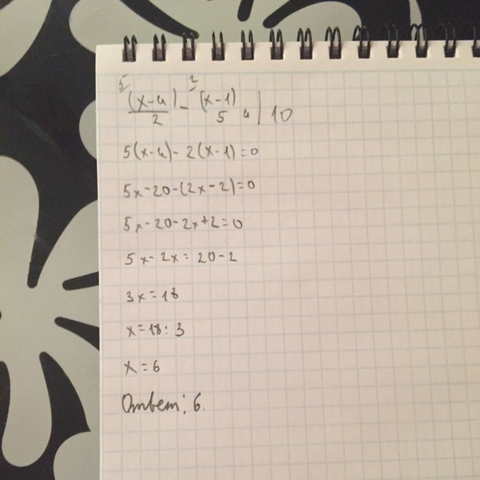 5 2
(x-4)/2 - (x-1)/5 4 | 10
5(x-4)-2(x-1)=0
5x-20-(2x-2)=0
5x-20-2x+2=0
5x-2x=20-2
3x=18
x=18:3
x=6
Ответ: 6.